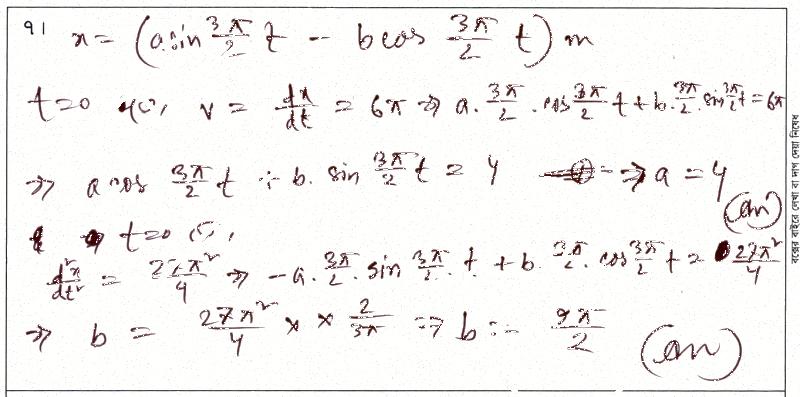 91 x = (a sin 3π/2 t - b cos 3π/2 t) m
t=0 এ, v = dx/dt = 6π ⇒ a. 3π/2 . cos 3π/2 t + b. 3π/2 . sin 3π/2 t = 6π
⇒ a cos 3π/2 t + b. sin 3π/2 t = 4 ⇒ a = 4
(an)
t=0 এ,
d²x/dt² = 27π²/4 ⇒ -a. 3π/2 . sin 3π/2 . t + b. 3π/2 . cos 3π/2 t = 27π²/4
⇒ b = 27π²/4 × × 2/3π ⇒ b = 9π/2 (an)
বক্সের বাইরে লেখা বা দাগ দেয়া নিষেধ